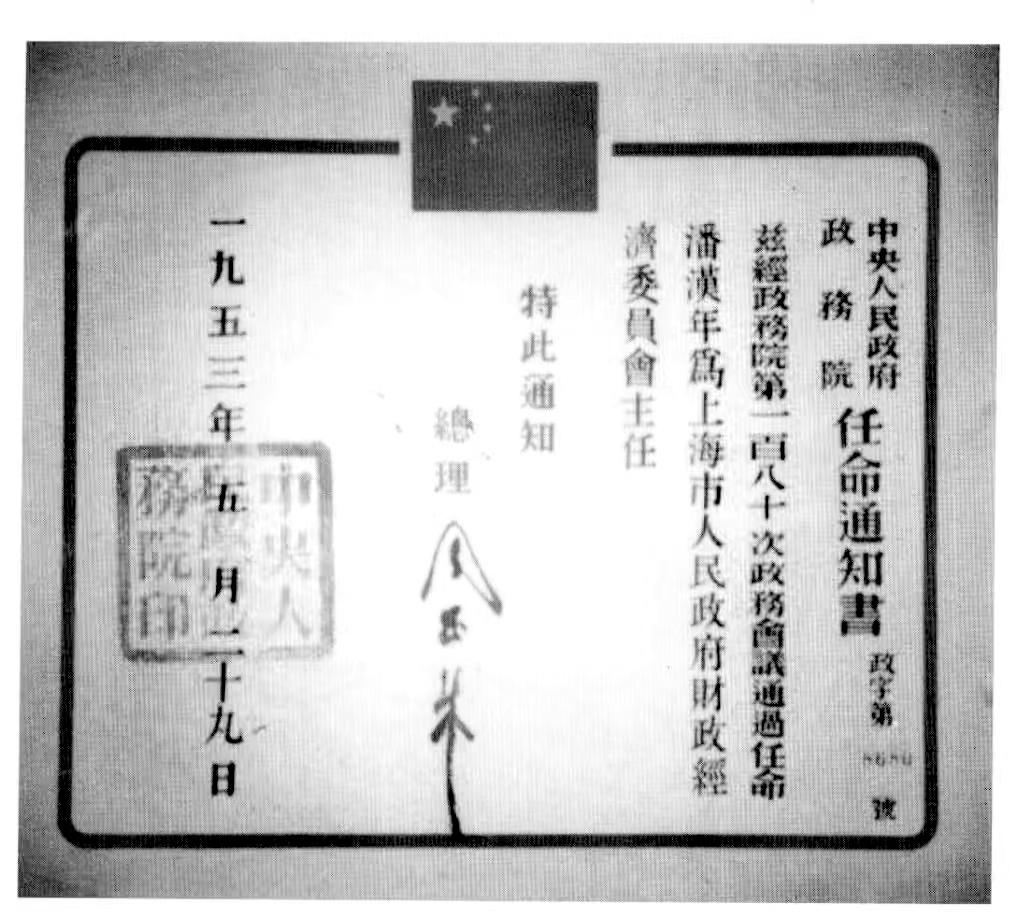 中央人民政府
政務院
任命通知書
政字第
號
茲經政務院第一百八十次政務會議通過任命
潘漢年爲上海市人民政府財政經
濟委員會主任
特此通知
總理
周恩來
一九五三年五月二十九日
中央人
民政府政
務院印